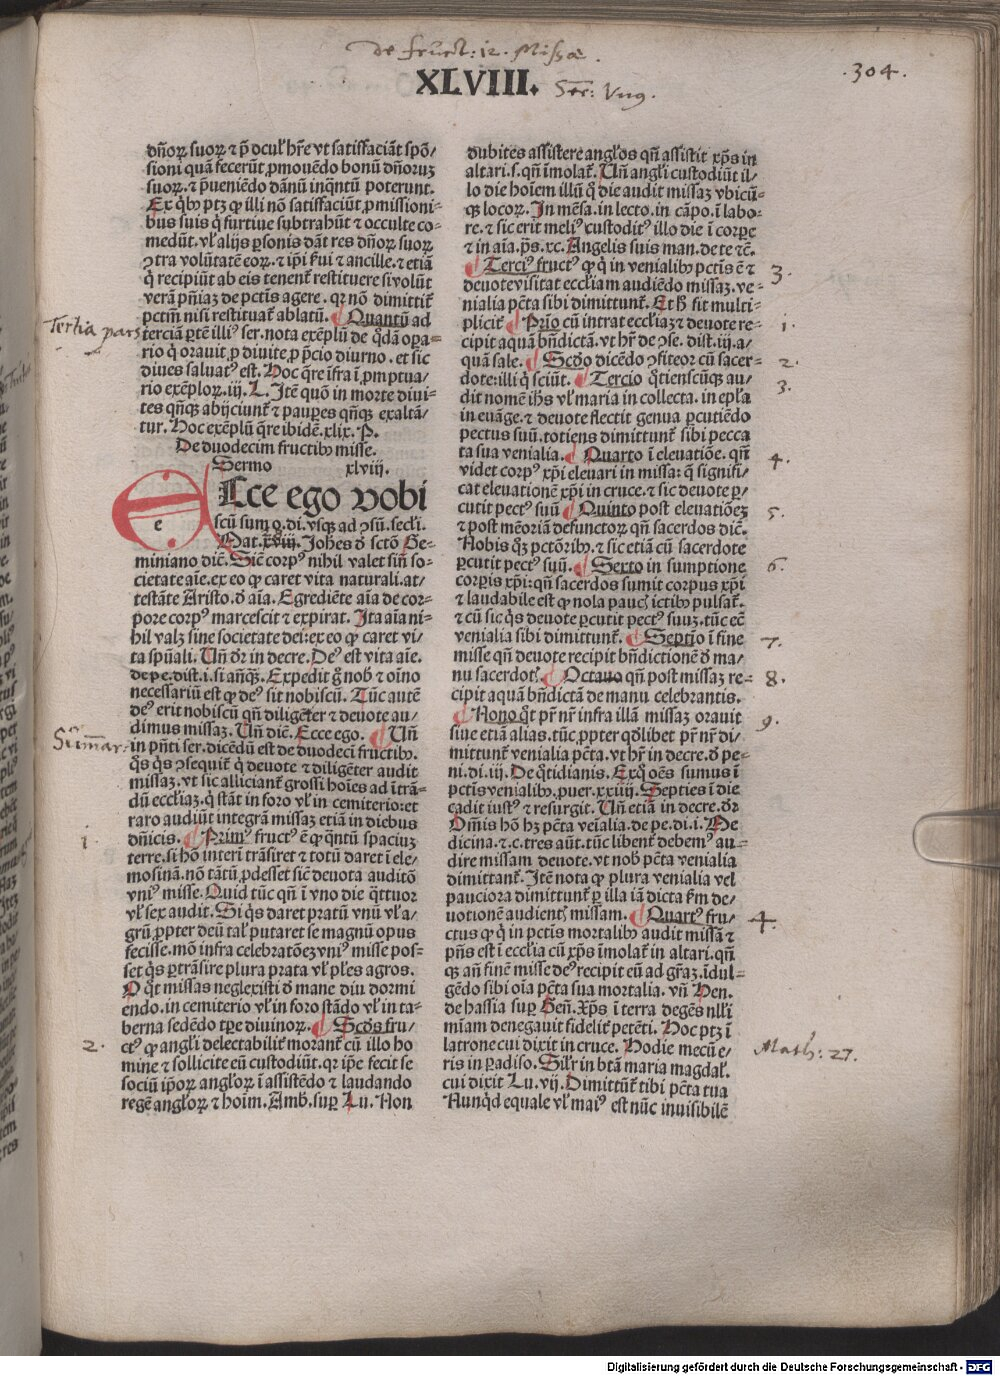 De fruct: 12. Missæ.
XLVIII.
.304.
dñoꝝ suoꝝ ⁊ p̃ docul̃ hr̃e vt satisfaciãt spõ/
sioni quã fecerũt ꝓmouẽdo bonũ dñoruꝫ
suoꝝ. ⁊ p̃ueniẽdo dãnũ inqntũ poterunt.
Ex qbꝰ ptꝫ ꝙ illi nõ satisfaciũt ꝓmissioni-
bus suis q̃ furtiue subtrahũt ⁊ occulte co-
medũt. vl̃ alijs ꝑsonis dãt res dñoꝝ suoꝝ
ↄtra volũtatẽ eoꝝ. ⁊ ip̃i ẜui ⁊ ancille. ⁊ etiã
q̃ recipiũt ab eis tenent̃ restituere si volũt
verã pñiaꝫ de pctĩs agere. qꝛ nõ dimittit̃
pctm̃ nisi restituat̃ ablatũ. Quantũ ad
Tertia pars
terciã ꝑtẽ illiꝰ ser. nota exẽplũ de q̃dã oꝑa-
rio q̃ orauit ꝓ diuite ꝓ p̃cio diurno. et sic
diues saluatꝰ est. Hoc q̃re ĩfra ĩ ꝓmptua/
rio exẽploꝝ. iij. L. Itẽ quõ in morte diui-
tes qñqꝫ abijciunt̃ ⁊ pauꝑes qñqꝫ exaltã/
tur. Hoc exẽplũ q̃re ibidẽ. xlix. P.
De duodecim fructibꝰ misse.
Sermo xlviij.
Ecce ego vobi
scũ sum oĩ. di. vsqꝫ ad ↄsũ. secl̃i.
Mat. xviij. Joh̃es ð sctõ Ge-
miniano dic̃. Sic̃ corpꝰ nihil valet siñ so-
cietate aĩe. ex eo ꝙ caret vita naturali. at/
testãte Aristo. ð aĩa. Egrediẽte aĩa de cor-
pore corpꝰ marcescit ⁊ expirat. Ita aĩa ni-
hil valꝫ sine societate dei: ex eo ꝙ caret vi/
ta spũali. Uñ dr̃ in decre. Deꝰ est vita aĩe.
de pe. dist. i. si añqꝫ. Expedit g̃ nob̃ ⁊ oĩno
necessariũ est ꝙ deꝰ sit nobiscũ. Tũc autẽ
deꝰ erit nobiscũ qñ diligẽter ⁊ deuote au/
dimus missaꝫ. Uñ dic̃. Ecce ego. Uñ
Sũmar:
in pñti ser. dicẽdũ est de duodecĩ fructibꝰ.
q̃s q̃s ↄsequit̃ q̃ deuote ⁊ diligẽter audit
missaꝫ. vt sic alliciant̃ grossi hoĩes ad ĩtrã-
dũ eccl̃iaꝫ. q̃ stãt in foro vl̃ in cemiterio: et
raro audiũt integrã missaꝫ etiã in diebus
1.
dñicis. Primꝰ fructꝰ ẽ ꝙ qntũ spaciuꝫ
terre. si hõ interĩ trãsiret ⁊ totũ daret ĩ ele/
mosinã. nõ tãtũ ꝓdesset sic̃ deuota auditõ
vniꝰ misse. Quid tũc qñ ĩ vno die q̃ttuor
vl̃ sex audit. Si q̃s daret pratũ vnũ vl̃ a/
grũ ꝓpter deũ tal̃ putaret se magnũ opus
fecisse. mõ infra celebratõeꝫ vniꝰ misse pos-
set q̃s ꝑtrãsire plura prata vl̃ pl̃es agros.
O q̃t missas neglexisti ð mane diu dormi
endo. in cemiterio vl̃ in foro stãdo vl̃ in ta-
berna sedẽdo tꝑe diuinoꝝ. Scd̃s fru/
2.
ctꝰ ꝙ angl̃i delectabilit̃ morant̃ cũ illo ho
mine ⁊ sollicite eũ custodiũt. qꝛ ip̃e fecit se
sociũ ip̃oꝝ angl̃oꝝ ĩ assistẽdo ⁊ laudando
regẽ angl̃oꝝ ⁊ hoĩm. Amb̃. suꝑ Lu. Non
dubites assistere angl̃os qñ assistit xp̃s in
altari. s. qñ ĩmolat̃. Uñ angl̃i custodiũt il/
lo die hoĩem illũ q̃ die audit missaꝫ vbicũ-
qꝫ locoꝝ. In mẽsa. in lecto. in cãpo. ĩ labo-
re. ⁊ sic erit meliꝰ custoditꝰ illo die ĩ corꝑe
⁊ in aĩa. p̃s. xc. Angelis suis man. de te ⁊c̃.
3.
Terciꝰ fructꝰ ꝙ q̃ in venialibꝰ pctĩs ẽ ⁊
deuote visitat eccl̃iam audiẽdo missaꝫ. ve-
nialia pctã sibi dimittunt̃. Et ħ fit multi-
1.
plicit̃ Prĩo cũ intrat eccl̃iaꝫ ⁊ deuote re-
cipit aquã bñdictã. vt hr̃ de ↄse. dist. iij. a/
2.
quã sale. Scd̃o dicẽdo ↄfiteor cũ sacer-
dote: illi q̃ sciũt. Tercio q̃tienscũqꝫ au/
3.
dit nomẽ ih̃s vl̃ maria in collecta. in epl̃a
in euãge. ⁊ deuote flectit genua ꝑcutiẽdo
pectus suũ. totiens dimittunt̃ sibi pecca
ta sua venialia. Quarto ĩ eleuatiõe. qñ
4.
videt corpꝰ xp̃i eleuari in missa: q̃ signifi/
cat eleuationẽ xp̃i in cruce. ⁊ sic deuote ꝑ/
cutit pectꝰ suũ Quinto post eleuatiõeꝫ
5.
⁊ post mẽoriã defunctoꝝ qñ sacerdos dic̃.
Nobis q̃ꝫ pctõribꝰ. ⁊ sic etiã cũ sacerdote
ꝑcutit pectꝰ suũ. Sexto in sumptione
6.
corꝑis xp̃i: qñ sacerdos sumit corpus xp̃i
⁊ laudabile est ꝙ nola paucꝭ ictibꝰ pulsat̃.
⁊ cũ sic q̃s deuote ꝑcutit pectꝰ suuꝫ. tũc ec̃
venialia sibi dimittunt̃. Septĩo ĩ fine
7.
misse qñ deuote recipit bñdictionẽ ð ma/
nu sacerdotꝭ. Octauo qñ post missaꝫ re-
8.
cipit aquã bñdictã de manu celebrantis.
Nono q̃t pr̃ nr̃ infra illã missaꝫ orauit
9.
siue etiã alias. tũc ꝓpter qdlibet pr̃ nr̃ di/
mittunt̃ venialia pctã. vt hr̃ in decre. ð pe-
ni. di. iij. De q̃tidianis. Exq̃ oẽs sumus ĩ
pctĩs venialibꝰ. ꝓuer. xxiiij. Septies ĩ die
cadit iustꝰ ⁊ resurgit. Uñ etiã in decre. dr̃
Om̃is hõ hꝫ pctã veĩalia. de pe. di. i. Me
dicina. ⁊ c. tres aũt. tũc libent̃ debemꝰ au-
dire missam deuote. vt nob̃ pctã venialia
dimittant̃. Itẽ nota ꝙ plura venialia vel
pauciora dimittunt̃ ꝑ illa iã dicta ẜm de/
uotionẽ audientꝭ missam. Quartꝰ fru/
4.
ctus ꝙ q̃ in pctĩs mortalibꝰ audit missã ⁊
pñs est ĩ eccl̃ia cũ xp̃s ĩmolat̃ in altari. qñ
qꝫ añ finẽ misse deꝰ recipit eũ ad gr̃aꝫ. ĩdul-
gẽdo sibi oĩa pctã sua mortalia. vñ Hen.
de hassia suꝑ Geñ. Xp̃s ĩ terra degẽs nll̃i
miam denegauit fidelit̃ petẽti. Hoc ptꝫ ĩ
latrone cui dixit in cruce. Hodie mecũ e/
Math: 27.
ris in ꝑadiso. Sil̃r in btã maria magdal̃.
cui dixit Lu. vij. Dimittũt̃ tibi pctã tua
Nunqd equale vl̃ maiꝰ est nũc inuisibilẽ
Digitalisierung gefördert durch die Deutsche Forschungsgemeinschaft - DFG